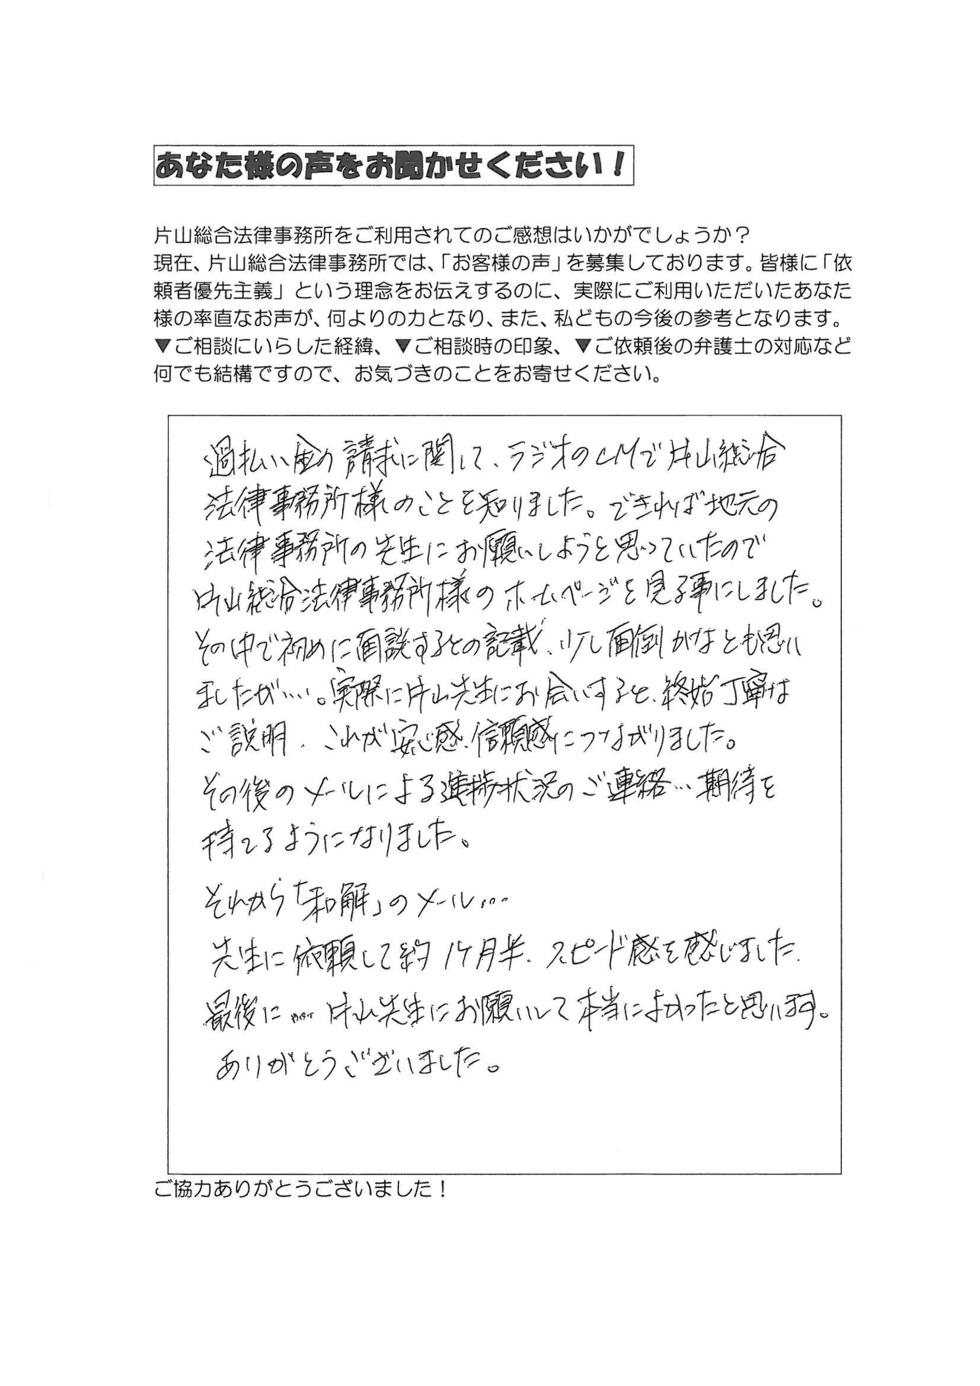 あなた様の声をお聞かせください！
片山総合法律事務所をご利用されてのご感想はいかがでしょうか？
現在、片山総合法律事務所では、「お客様の声」を募集しております。皆様に「依
頼者優先主義」という理念をお伝えするのに、実際にご利用いただいたあなた
様の率直なお声が、何よりの力となり、また、私どもの今後の参考となります。
▼ご相談にいらした経緯、▼ご相談時の印象、▼ご依頼後の弁護士の対応など
何でも結構ですので、お気づきのことをお寄せください。
過払い金の請求に関して、ラジオのCMで片山総合
法律事務所様のことを知りました。できれば地元の
法律事務所の先生にお願いしようと思っていたので
片山総合法律事務所様のホームページを見る事にしました。
その中で初めに面談するとの記載、少し面倒かなとも思い
ましたが…。実際に片山先生にお会いすると、終始丁寧な
ご説明、これが安心感、信頼感につながりました。
その後のメールによる進捗状況のご連絡…期待を
持てるようになりました。
それから「和解」のメール…
先生に依頼して約1ヶ月半、スピード感を感じました、
最後に……片山先生にお願いして本当によかったと思います。
ありがとうございました。
ご協力ありがとうございました！